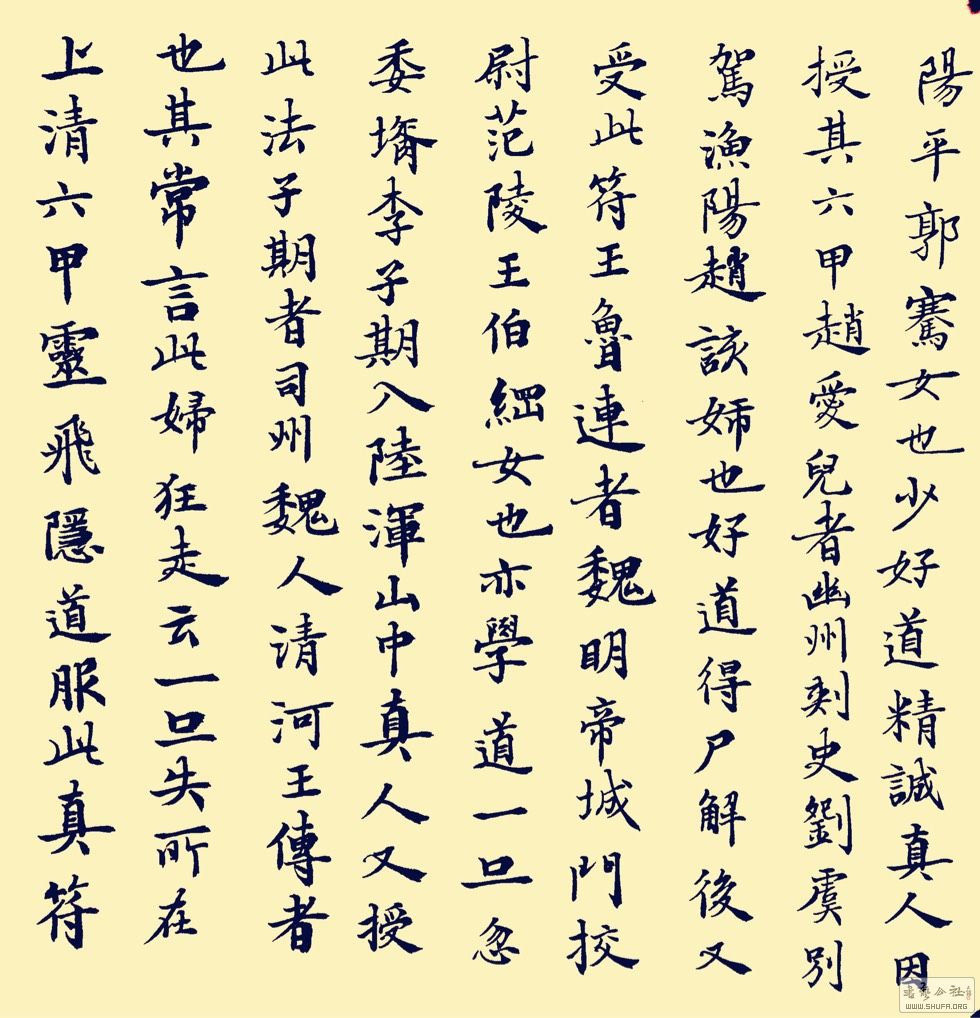 陽平郭騫女也少好道精誠真人因
授其六甲趙愛兒者幽州刺史劉虞別
駕漁陽趙該姊也好道得尸解後又
受此符王魯連者魏明帝城門挍
尉范陵王伯綱女也亦學道一旦忽
委壻李子期入陸渾山中真人又授
此法子期者司州魏人清河王傳者
也其常言此婦狂走云一旦失所在
上清六甲靈飛隱道服此真符
WWW.SHUFA.ORG